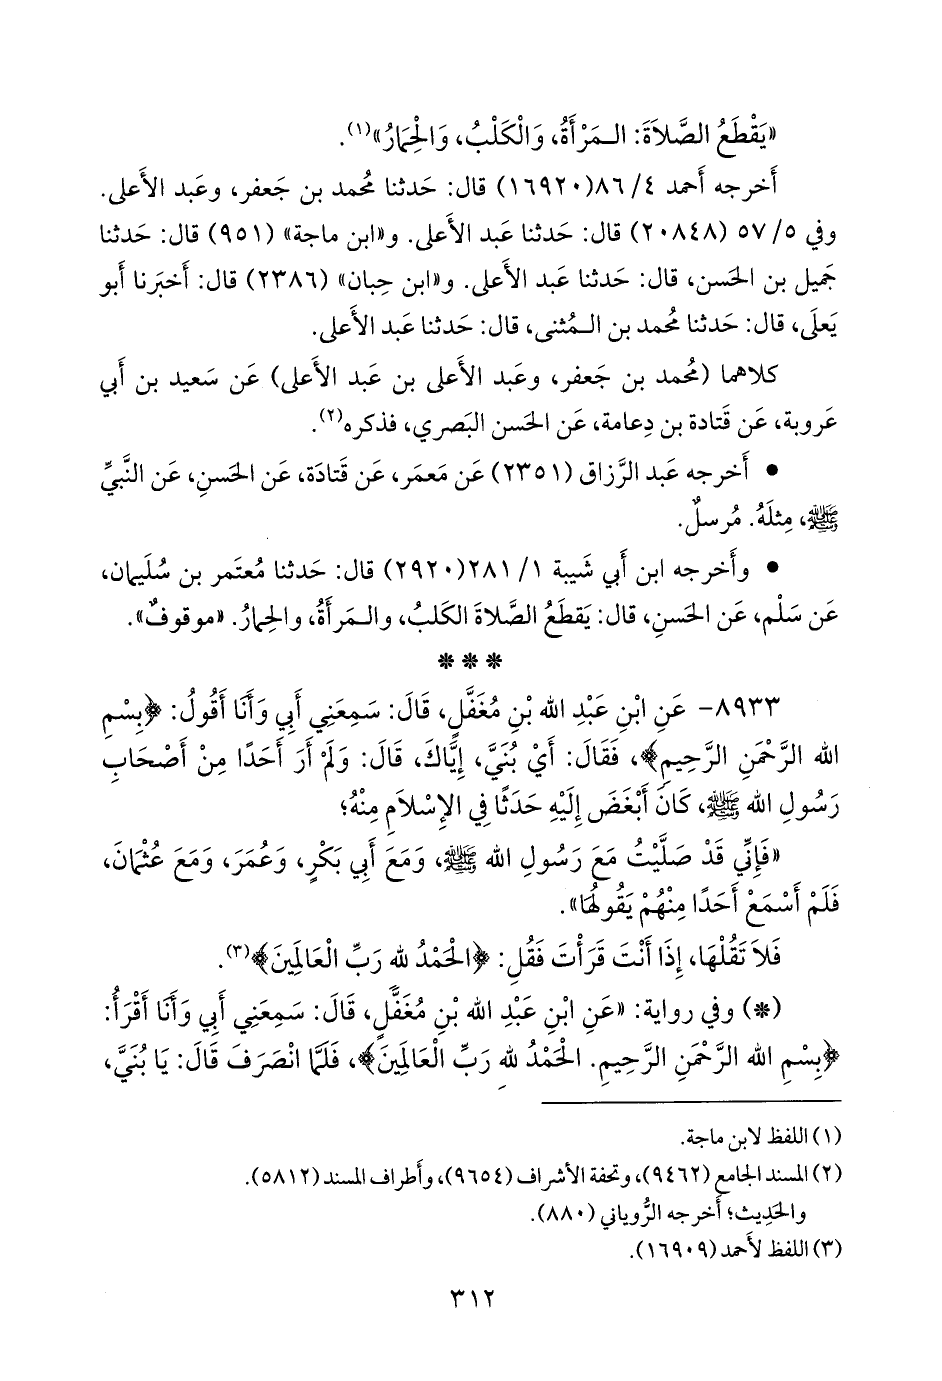 «يَقْطَعُ الصَّلاَةَ: الـمَرْأَةُ، وَالْكَلْبُ، وَالْحِمَارُ»(١).
أَخرجه أَحمد ٤/ ٨٦(١٦٩٢٠) قال: حَدثنا مُحمد بن جَعفر، وعَبد الأَعلى.
وفي ٥/ ٥٧ (٢٠٨٤٨) قال: حَدثنا عَبد الأَعلى. و«ابن ماجة» (٩٥١) قال: حَدثنا
جَميل بن الحَسن، قال: حَدثنا عَبد الأَعلى. و«ابن حِبان» (٢٣٨٦) قال: أَخبَرنا أَبو
يَعلَى، قال: حَدثنا مُحمد بن الـمُثنى، قال: حَدثنا عَبد الأَعلى.
كلاهما (مُحمد بن جَعفر، وعَبد الأَعلى بن عَبد الأَعلى) عَن سَعيد بن أَبي
عَروبة، عَن قَتادة بن دِعامة، عَن الحَسن البَصري، فذكره(٢).
• أَخرجه عَبد الرَّزاق (٢٣٥١) عَن مَعمَر، عَن قَتادَة، عَن الحَسنِ، عَن النَّبيِّ
ﷺ، مِثلَهُ. مُرسلٌ.
• وأَخرجه ابن أَبي شَيبة ١/ ٢٨١(٢٩٢٠) قال: حَدثنا مُعتَمر بن سُليمان،
عَن سَلْم، عَن الحَسنِ، قال: يَقطَعُ الصَّلاةَ الكَلبُ، والـمَرأَةُ، والحِمارُ. «موقوفٌ».
* * *
٨٩٣٣- عَنِ ابْنِ عَبْدِ الله بْنِ مُغَفَّلٍ، قَالَ: سَمِعَنِي أَبِي وَأَنَا أَقُولُ: ﴿بِسْمِ
الله الرَّحْمَنِ الرَّحِيمِ﴾، فَقَالَ: أَيْ بُنَيَّ، إِيَّاكَ، قَالَ: وَلَمْ أَرَ أَحَدًا مِنْ أَصْحَابِ
رَسُولِ الله ﷺ، كَانَ أَبْغَضَ إِلَيْهِ حَدَثًا فِي الإِسْلاَمِ مِنْهُ؛
«فَإِنِّي قَدْ صَلَّيْتُ مَعَ رَسُولِ الله ﷺ، وَمَعَ أَبِي بَكْرٍ، وَعُمَرَ، وَمَعَ عُثْمَانَ،
فَلَمْ أَسْمَعْ أَحَدًا مِنْهُمْ يَقُولُهَا».
فَلاَ تَقُلْهَا، إِذَا أَنْتَ قَرَأْتَ فَقُلِ: ﴿الْحَمْدُ لله رَبِّ الْعَالَمِينَ﴾(٣).
(*) وفي رواية: «عَنِ ابْنِ عَبْدِ الله بْنِ مُغَفَّلٍ، قَالَ: سَمِعَنِي أَبِي وَأَنَا أَقْرَأُ:
﴿بِسْمِ الله الرَّحْمَنِ الرَّحِيمِ. الْحَمْدُ لله رَبِّ الْعَالَمِينَ﴾، فَلَمَّا انْصَرَفَ قَالَ: يَا بُنَيَّ،
(١) اللفظ لابن ماجة.
(٢) المسند الجامع (٩٤٦٢)، وتحفة الأشراف (٩٦٥٤)، وأطراف المسند (٥٨١٢).
والحَدِيث؛ أَخرجه الرُّوياني (٨٨٠).
(٣) اللفظ لأَحمد (١٦٩٠٩).
٣١٢